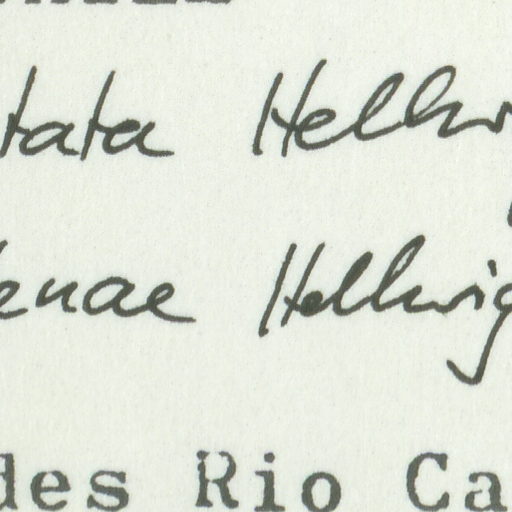 tata Hellw
enae Hellwig
des Rio Ca